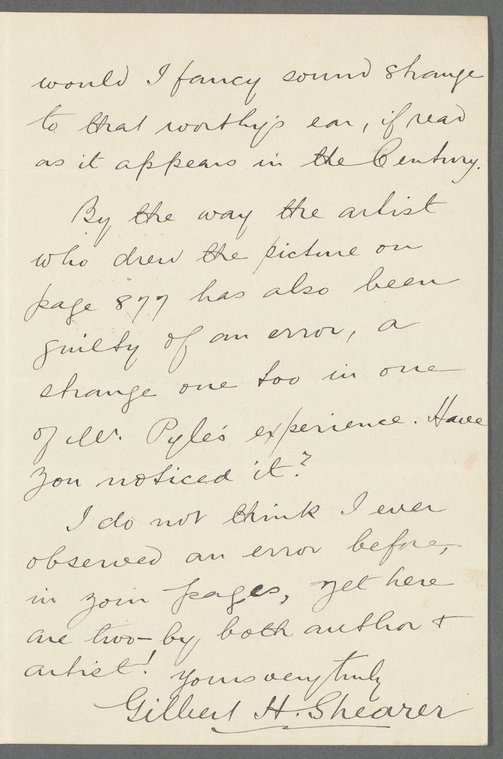 would I fancy sound strange
to that worthy's ear, if read
as it appears in the Century.
By the way the artist
who drew the picture on
page 877 has also been
guilty of an error, a
strange one too in one
of Mr. Pyle's experience. Have
you noticed it?
I do not think I ever
observed an error before,
in your pages, yet here
are two - by, both author &
artist! yours very truly
Gilbert H. Shearer